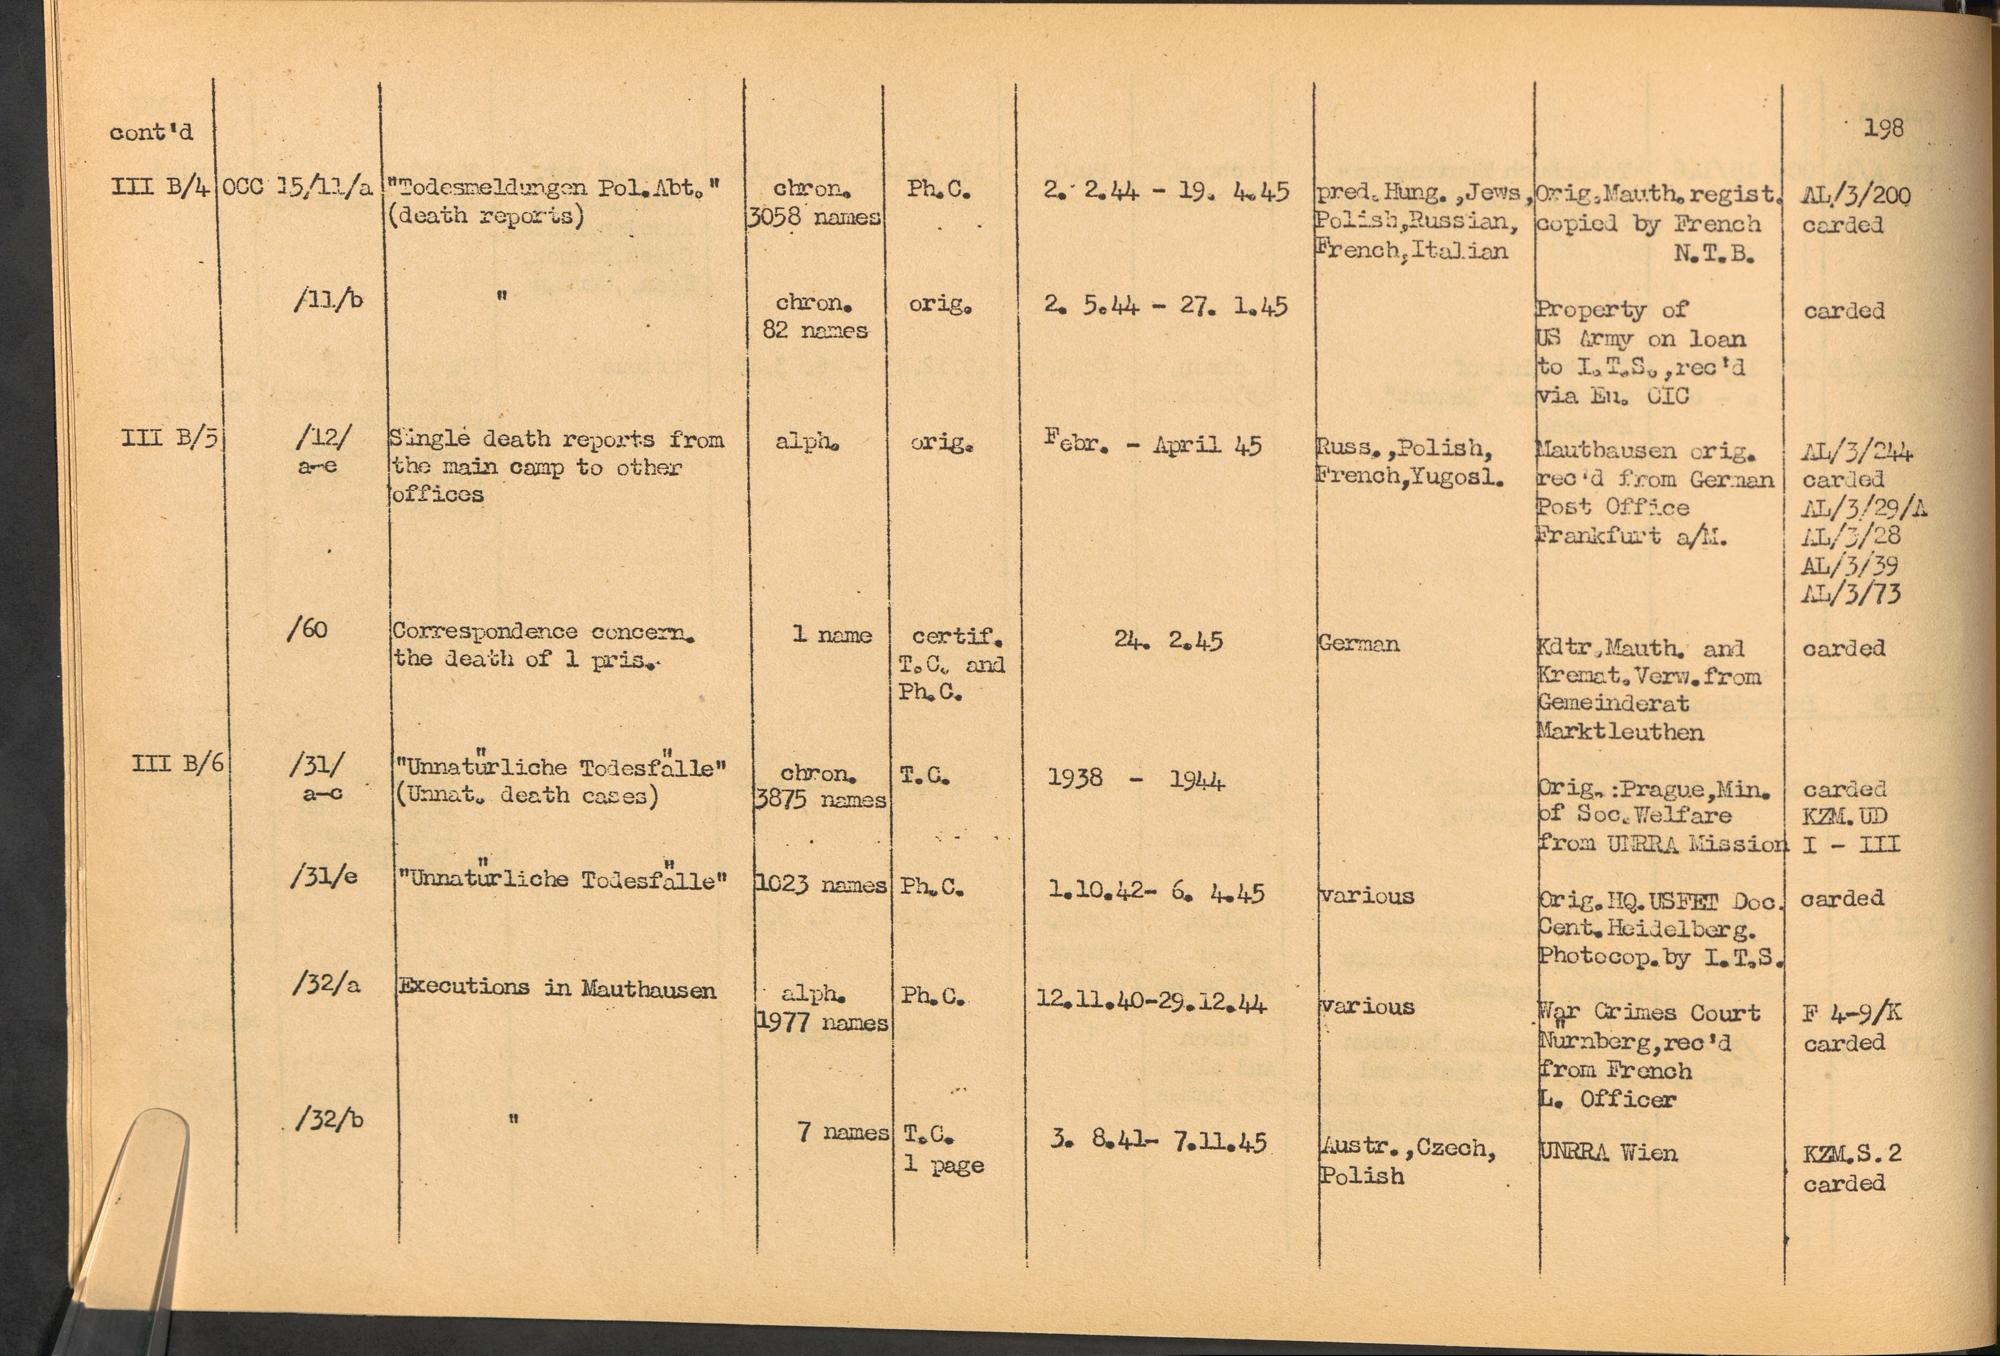 cont'd
198
III B/4 OCC 15/11/a "Todesmeldungen Pol.Abt." chron. Ph.C. 2. 2.44 - 19. 4.45 pred.Hung.,Jews, Orig.Mauth.regist. AL/3/200
(death reports) 3058 names Polish,Russian, copied by French carded
French,Italian N.T.B.
/11/b " chron. orig. 2. 5.44 - 27. 1.45 Property of carded
82 names US Army on loan
to I.T.S.,rec'd
via Eu. CIC
III B/5 /12/ Single death reports from alph. orig. Febr. - April 45 Russ.,Polish, Mauthausen orig. AL/3/244
a-e the main camp to other French,Yugosl. rec'd from German carded
offices Post Office AL/3/29/A
Frankfurt a/M. AL/3/28
AL/3/39
AL/3/73
/60 Correspondence concern. 1 name certif. 24. 2.45 German Kdtr.Mauth. and carded
the death of 1 pris. T.C. and Kremat.Verw.from
Ph.C. Gemeinderat
Marktleuthen
III B/6 /31/ "Unnatürliche Todesfälle" chron. T.C. 1938 - 1944 Orig.:Prague,Min. carded
a-c (Unnat. death cases) 3875 names of Soc.Welfare KZM.UD
from UNRRA Mission I - III
/31/e "Unnatürliche Todesfälle" 1023 names Ph.C. 1.10.42- 6. 4.45 various Orig.HQ.USFET Doc. carded
Cent.Heidelberg.
Photocop.by I.T.S.
/32/a Executions in Mauthausen alph. Ph.C. 12.11.40-29.12.44 various War Crimes Court F 4-9/K
1977 names Nürnberg,rec'd carded
from French
L. Officer
/32/b " 7 names T.C. 3. 8.41- 7.11.45 Austr.,Czech, UNRRA Wien KZM.S.2
1 page Polish carded